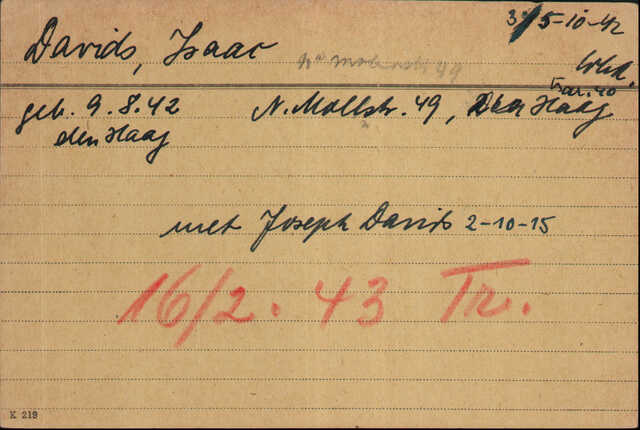 3/5-10-42
Davids, Isaac
Wbk.
Bar. 40
geb. 9.8.42 N. Mollstr. 49, Den Haag
den Haag
met Joseph Davids 2-10-15
16/2. 43 Tr.
K 219